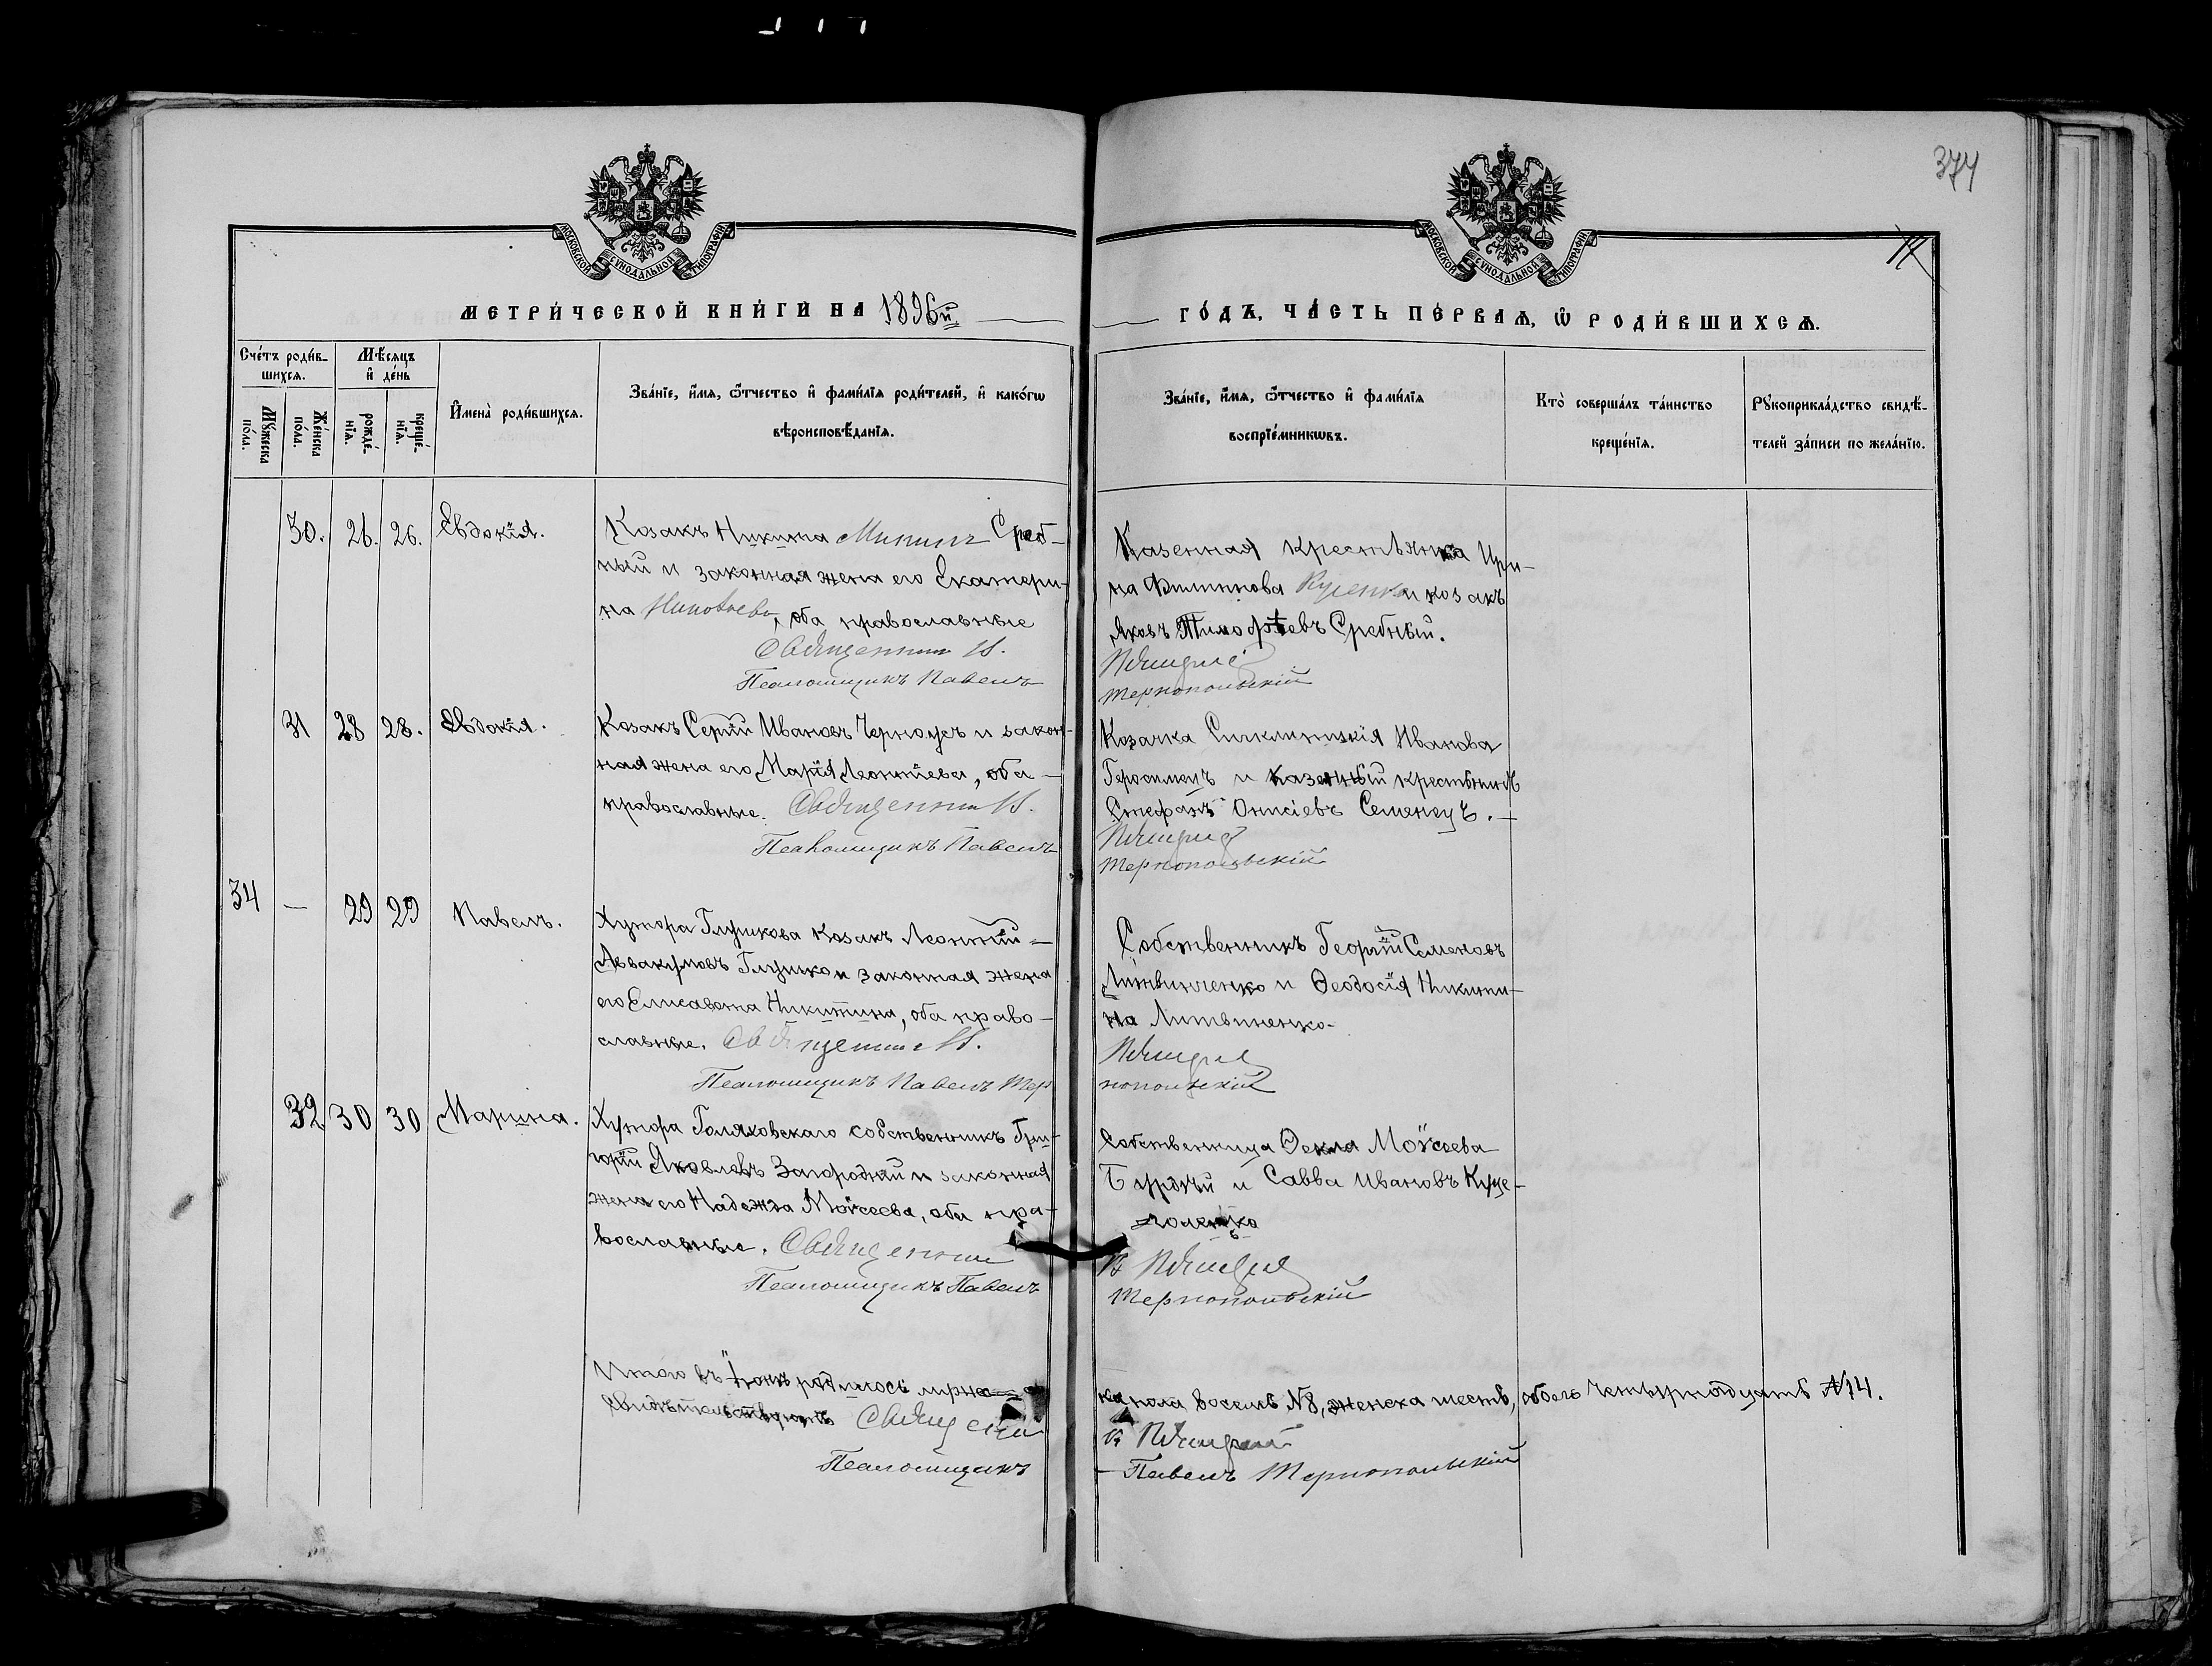 374
МОСКОВСКОЙ СѴНОДАЛЬНОЙ ТИПОГРАФІИ
МОСКОВСКОЙ СѴНОДАЛЬНОЙ ТИПОГРАФІИ
МЕТРИ́ЧЕСКОЙ КНИ́ГИ НА 1896й
ГО́ДЪ, ЧА́СТЬ ПЕ́РВАѦ, Ѡ҆ РОДИ́ВШИХСѦ.
Сче́тъ роди́в-
шихсѧ.
Мѣ́сѧцъ
и҆ де́нь
Мꙋ́жеска
по́ла.
Же́нска
по́ла.
рожде́-
нїѧ.
креще́-
нїѧ.
И҆мена̀ роди́вшихсѧ.
Зва́нїе, и҆́мѧ, ѻ҆́тчество и҆ фами́лїѧ роди́телей, и҆ како́гѡ
вѣроисповѣ́данїѧ.
Зва́нїе, и҆́мѧ, ѻ҆́тчество и҆ фами́лїѧ
воспрїе́мникѡвъ.
Кто̀ соверша́лъ та́инство
креще́нїѧ.
Рꙋкоприкла́дство свидѣ́-
телей за́писи по жела́нїю.
30. 26. 26. Евдокія.
Козакъ Никита Среб-
ный и законная жена его Екатери-
на оба православные
Священник И.
Псаломщикъ Павелъ
Казенная крестьянка Ири-
на Филиппова и козакъ
Яковъ Тимофѣевъ Сребный.
Тернопольскій
31 28 28. Евдокія.
Козакъ Сергій Ивановъ Черноусъ и закон-
ная жена его Марія Леонтіева, оба
православные. Священник И.
Псаломщикъ Павелъ
Козачка Синклитикія Иванова
и казенный крестьянинъ
Стефанъ Онисіевъ Семенецъ.
Тернопольскій
34 — 29 29 Павелъ.
Хутора Глушкова козакъ Леонтій
Аввакумовъ Глушко и законная жена
его Елисавета Никитина, оба право-
славные. Священник И.
Псаломщикъ Павелъ Тер
Собственникъ Георгій Семеновъ
Литвиненко и Ѳеодосія Никити-
на Литвиненко.
нопольскій
32 30 30 Марина.
Хутора Голяковскаго собственникъ Гри-
горій Яковлевъ Загородній и законная
жена его Надежда Моѵсеева, оба пра-
вославные. Священник
Псаломщикъ Павелъ
Собственница Ѳекла Моѵсеева
и Савва Ивановъ Куце-
Тернопольскій
Итого въ Іюнѣ родилось мужес
свидѣтельствуютъ Священник
Псаломщикъ
ка пола восемь №8, женска шесть, обоего четырнадцать №14.
Павелъ Тернопольскій